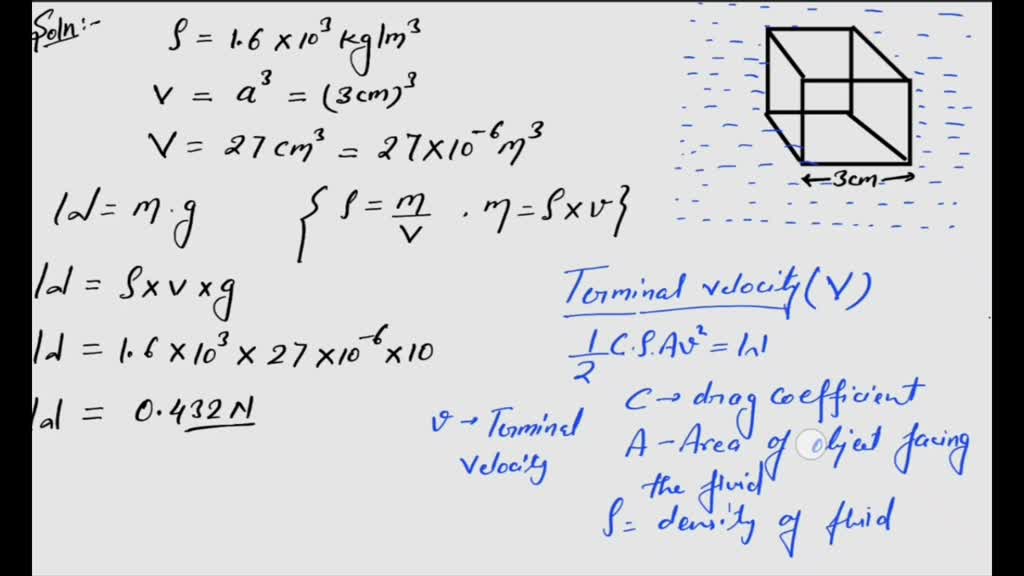 Soln:-
ρ = 1.6 × 10³ kg/m³
V = a³ = (3cm)³
V = 27 cm³ = 27×10⁻⁶ m³
W = m·g { ρ = m/V . m = ρ×v }
W = ρ×v×g
W = 1.6 × 10³ × 27×10⁻⁶ ×10
W = 0.432 N
3cm
Terminal velocity (V)
1/2 C.ρ.Av² = W
v → Terminal
velocity
C → drag coefficient
A - Area of object facing
the fluid
ρ = density of fluid